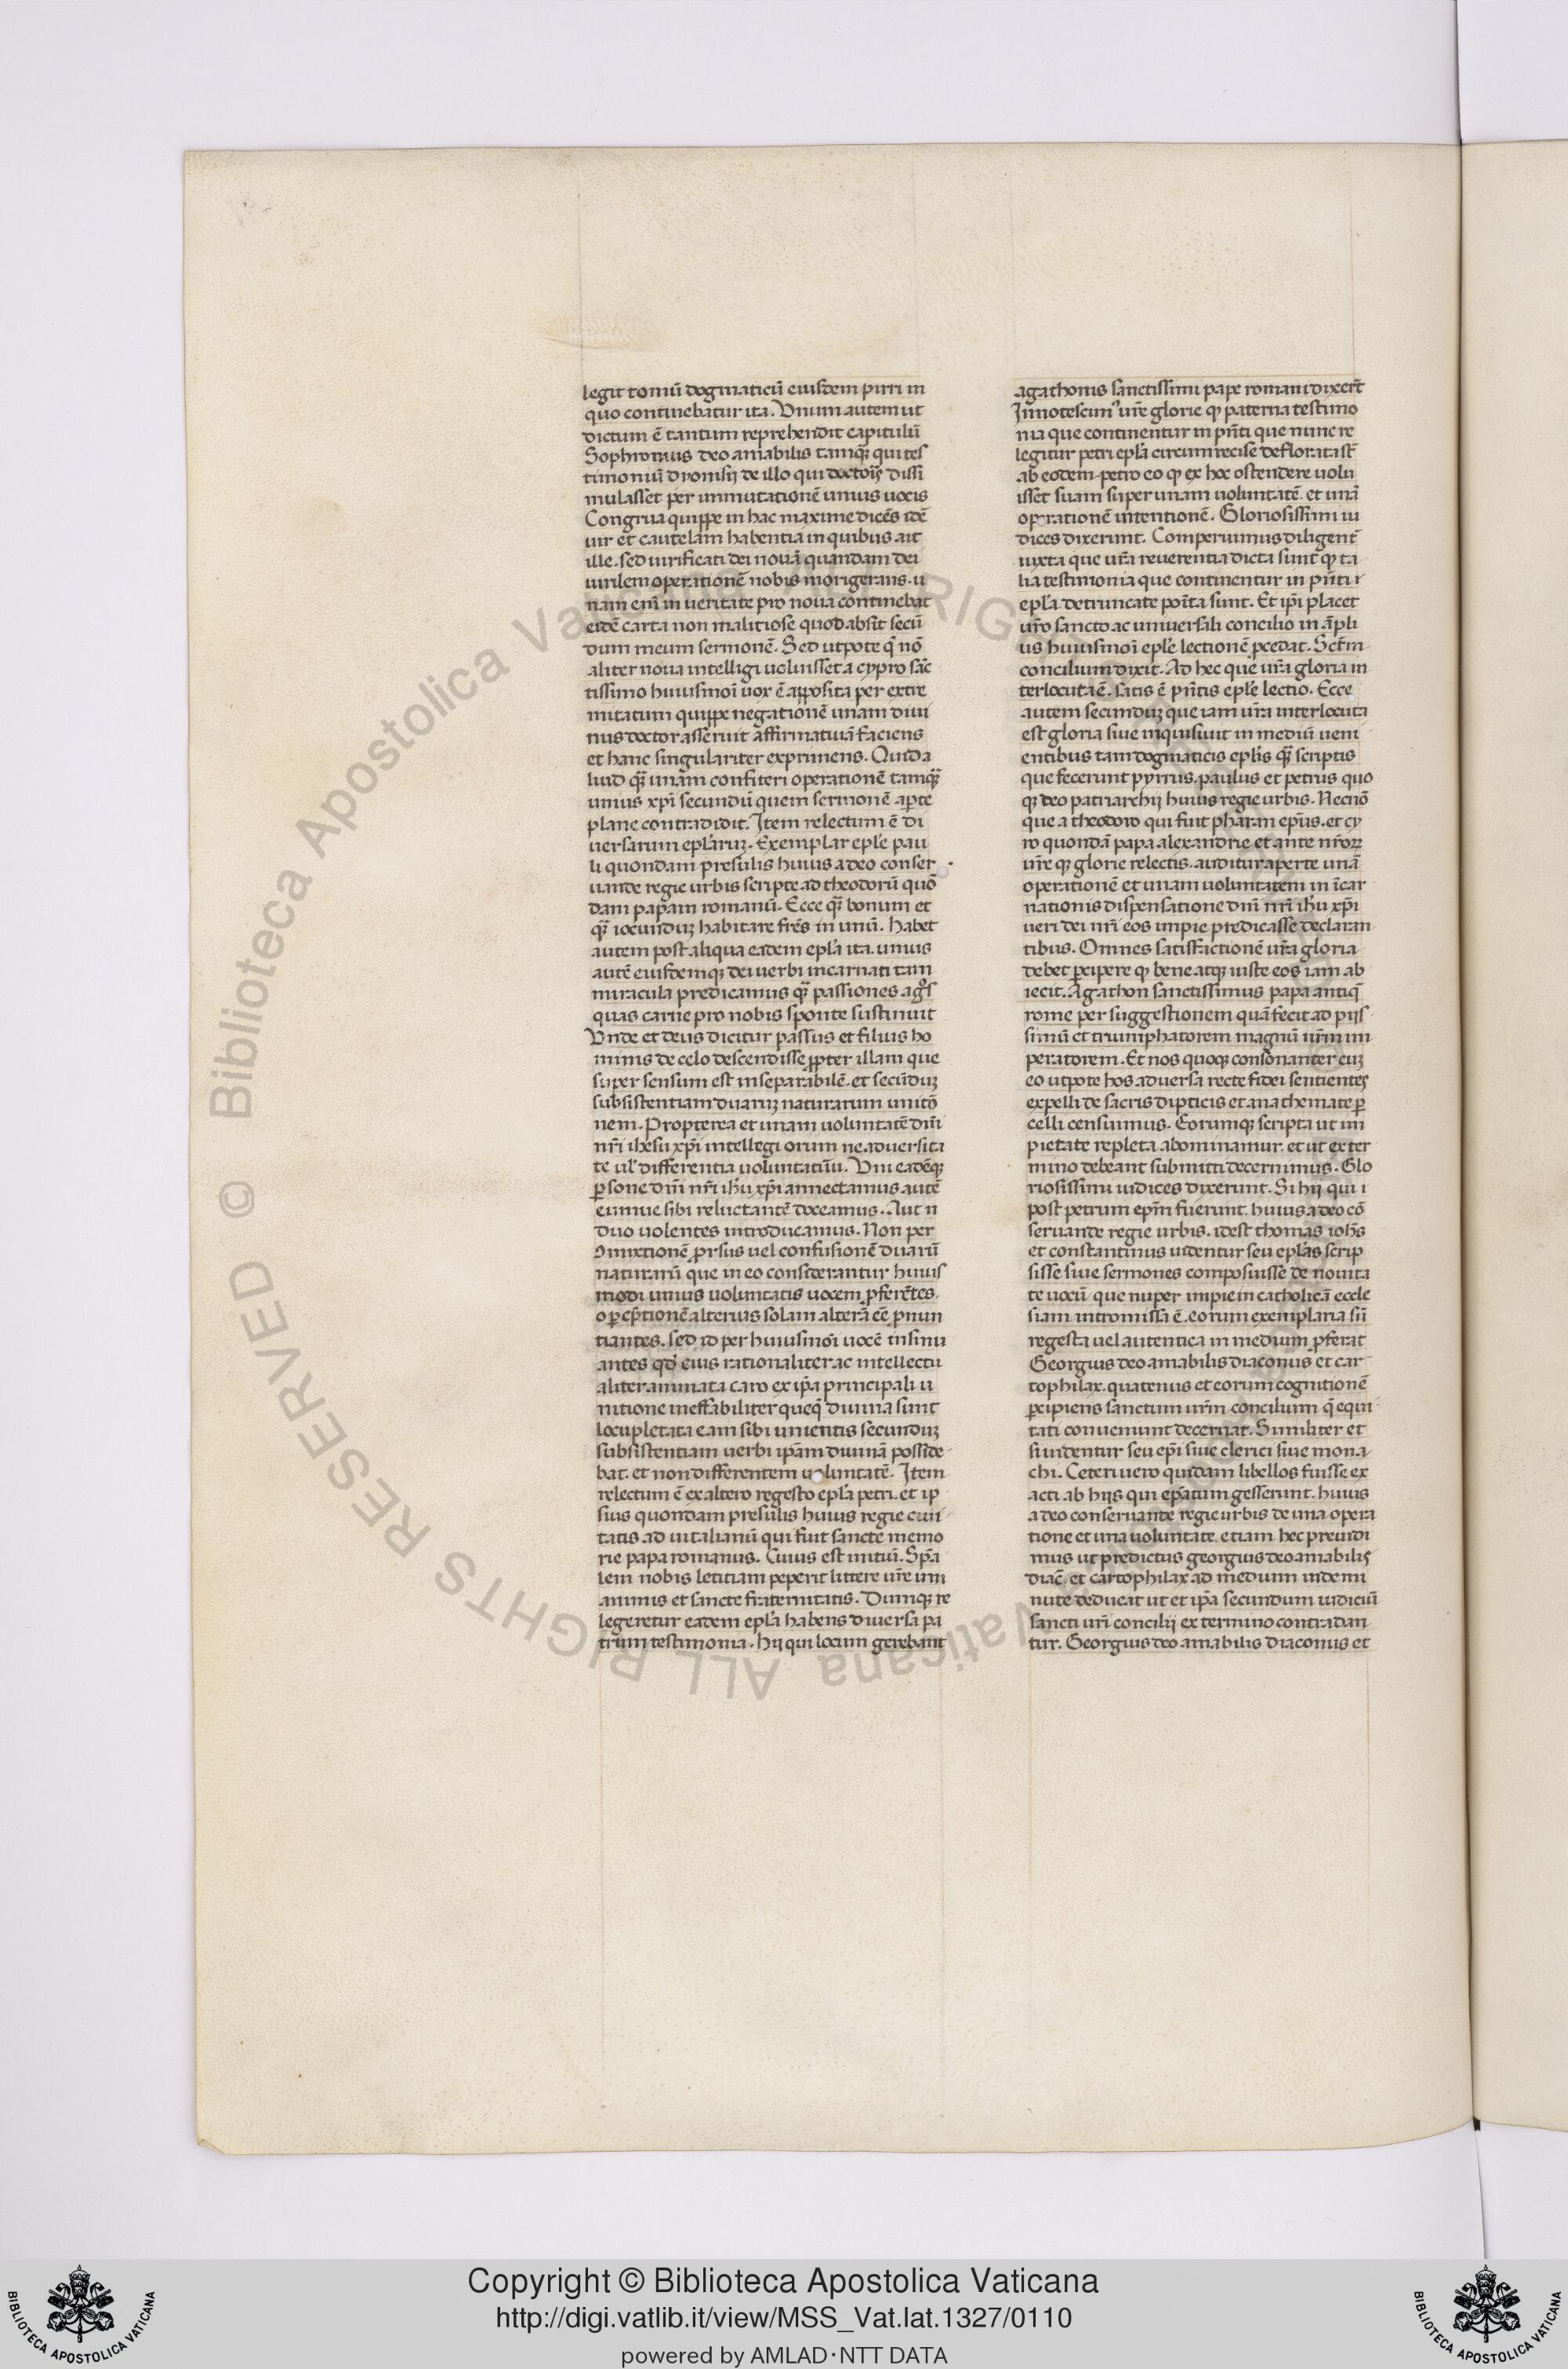 legit tomū dogmaticū eiusdem pirri in
quo continebatur ita. Vnum autem ut
dictum ē tantum reprehendit capitulū
Sophronius deo amabilis tamq̄ qui tes
timoniū dyonisij de illo qui doctoris dissi
mulasset per inmutationē unius uocis
Congrua quippe in hac maxime dicēs idē
uir et cautelam habentia in quibus ait
ille. sed uirificati dei nouā quandam dei
uirilem operationē nobis morigerans. u
nam eni in veritate pro noua continebat
eidē carta non malitiose quod absit secū
dum meum sermonē. Sed utpote q̄ nō
aliter noua intelligi uoluisset a cypro sāc
tissimo huiusmoi uox ē apposita per extre
mitatum quippe negationē unam diui
nus doctor asseruit affirmatiuā faciens
et hanc singulariter exprimens. Quid a
liud q̄ unam confiteri operationē tamq̄
unius xp̄i secundū quem sermonē ap̄te
plane contradidit. Item relectum ē di
uersarum ep̄laruz. Exemplar ep̄le pau
li quondam presulis huius a deo conser
uande regie urbis scripte ad theodorū quō
dam papam romanū. Ecce q̄ bonum et
q̄ iocunduz habitare frēs in unū. Habet
autem post aliqua eadem ep̄la ita. unius
autē eiusdemq; dei uerbi incarnati tam
miracula predicamus q̄ passiones
quas carne pro nobis sponte sustinuit
Vnde et deus dicitur passus et filius ho
minis de celo descendisse propter illam que
super sensum est inseparabilē. et secūduz
subsistentiam duaruz naturarum unitō
nem. Propterea et unam uoluntatē dn̄i
nr̄i ihesu xp̄i intellegi orum ne aduersita
te ul̄ differentia uoluntatū. Vni eadēq;
p̄sone dn̄i nr̄i ih̄u xp̄i annectamus autē
eumue sibi reluctantē doceamus. Aut n
duo uolentes introducamus. Non per
ꝯmixtionē prorsus uel confusionē duarū
naturarū que in eo considerantur huius
modi unius uoluntatis uocem p̄ferētes.
alterius solam alterā eē pnun
tiantes. sed id per huiusmoi uocē insinu
antes qd̄ eius rationaliter ac intellectu
aliter animata caro ex ip̄a principali u
nitione ineffabiliter queq̄ diuina sunt
locupletata eam sibi unientis secunduz
subsistentiam uerbi ip̄am diuinā posside
bat. et non differentem uoluntatē. Item
relectum ē ex altero regesto ep̄la petri. et ip
sius quondam presulis huius regie ciui
tatis ad uitalianū qui fuit sancte memo
rie papa romanus. Cuius est initiū. Sp̄a
lem nobis letitiam peperit littere ur̄e un
animis et sancte fraternitatis. Dumq; re
legeretur eadem ep̄la habens diuersa pa
trum testimonia. hij qui locum gerebant
agathonis sanctissimi pape romani dixer̄t
Innotescim' ur̄e glorie q̄ paterna testimo
nia que continentur in pn̄ti que nunc re
legitur petri ep̄la circumrecise deflorata st̄
ab eodem petro eo q̄ ex hoc ostendere uolu
isset suam super unam uoluntatē. et unā
operationē intentionē. Gloriosissimi iu
dices dixerunt. Comperuimus diligent̄
iuxta que ur̄a reuerentia dicta sunt q̄ ta
lia testimonia que continentur in pn̄ti
ep̄la detruncate poita sunt. Et ip̄i placet
ur̄o sancto ac uniuersali concilio in āpli
us huiusmoi ep̄le lectionē p̄cedat. Sc̄m
concilium dixit. Ad hec que ur̄a gloria in
terlocuta ē. satis ē pn̄tis ep̄le lectio. Ecce
autem secunduz que iam ur̄a interlocuta
est gloria siue inquisiuit in mediū ueni
entibus tam dogmaticis ep̄lis q̄ scriptis
que fecerunt pyrrus. paulus et petrus quo
q; deo patriarchij huius regie urbis. Necnō
que a theodoro qui fuit pharan ep̄us. et cy
ro quondā papa alexandrie et ante nr̄oꝝ
ur̄e q; glorie relectis. auditur aperte unā
operationē et unam uoluntatem in īcar
nationis dispensatione dn̄i nr̄i ih̄u xp̄i
ueri dei nr̄i eos impie predicasse declaran
tibus. Omnes satisfactionē ur̄a gloria
debet p̄cipere q̄ bene atq; iuste eos iam ab
iecit. Agathon sanctissimus papa antiq̄
rome per suggestionem quā fecit ad pijs
simū et triumphatorem magnū ur̄m im
peratorem. Et nos quoq; consonanter euz
eo utpote hos aduersa recte fidei sentientes
expelli de sacris dipticis et anathemate p̄
celli censuimus. Eorumq; scripta ut im
pietate repleta abominamur. et ut exter
mino debeant submitti decernimus. Glo
riosissimi iudices dixerunt. Si hij qui i
post petrum ep̄m fuerunt. huius a deo cō
seruande regie urbis. idest thomas ioh̄s
et constantinus uidentur seu ep̄las scrip
sisse siue sermones composuisse de nouita
te uocū que nuper impie in catholicā eccle
siam intromissa ē. eorum exemplaria siū
regesta uel autentica in medium p̄ferat
Georgius deo amabilis diaconus et car
tophilax. quatenus et eorum cognitionē
p̄cipiens sanctum ur̄m concilium q̄ equi
tati conueniunt decernat. Similiter et
si uidentur seu ep̄i siue clerici siue mona
chi. Ceteri uero quidam libellos fuisse ex
acti ab hijs qui ep̄atum gesserunt. huius
a deo conseruande regie urbis de una opera
tione et una uoluntate. etiam hec preuidi
mus ut predictus georgius deo amabilis
diac̄. et cartophilax ad medium inde mi
nute deducat ut et ip̄a secundum iudiciū
sancti ur̄i concilij ex termino contradan
tur. Georgius deo amabilis diaconus et
© Biblioteca Apostolica Vaticana ALL RIGHTS RESERVED
Copyright © Biblioteca Apostolica Vaticana
http://digi.vatlib.it/view/MSS_Vat.lat.1327/0110
powered by AMLAD·NTT DATA
BIBLIOTECA APOSTOLICA VATICANA
BIBLIOTECA APOSTOLICA VATICANA